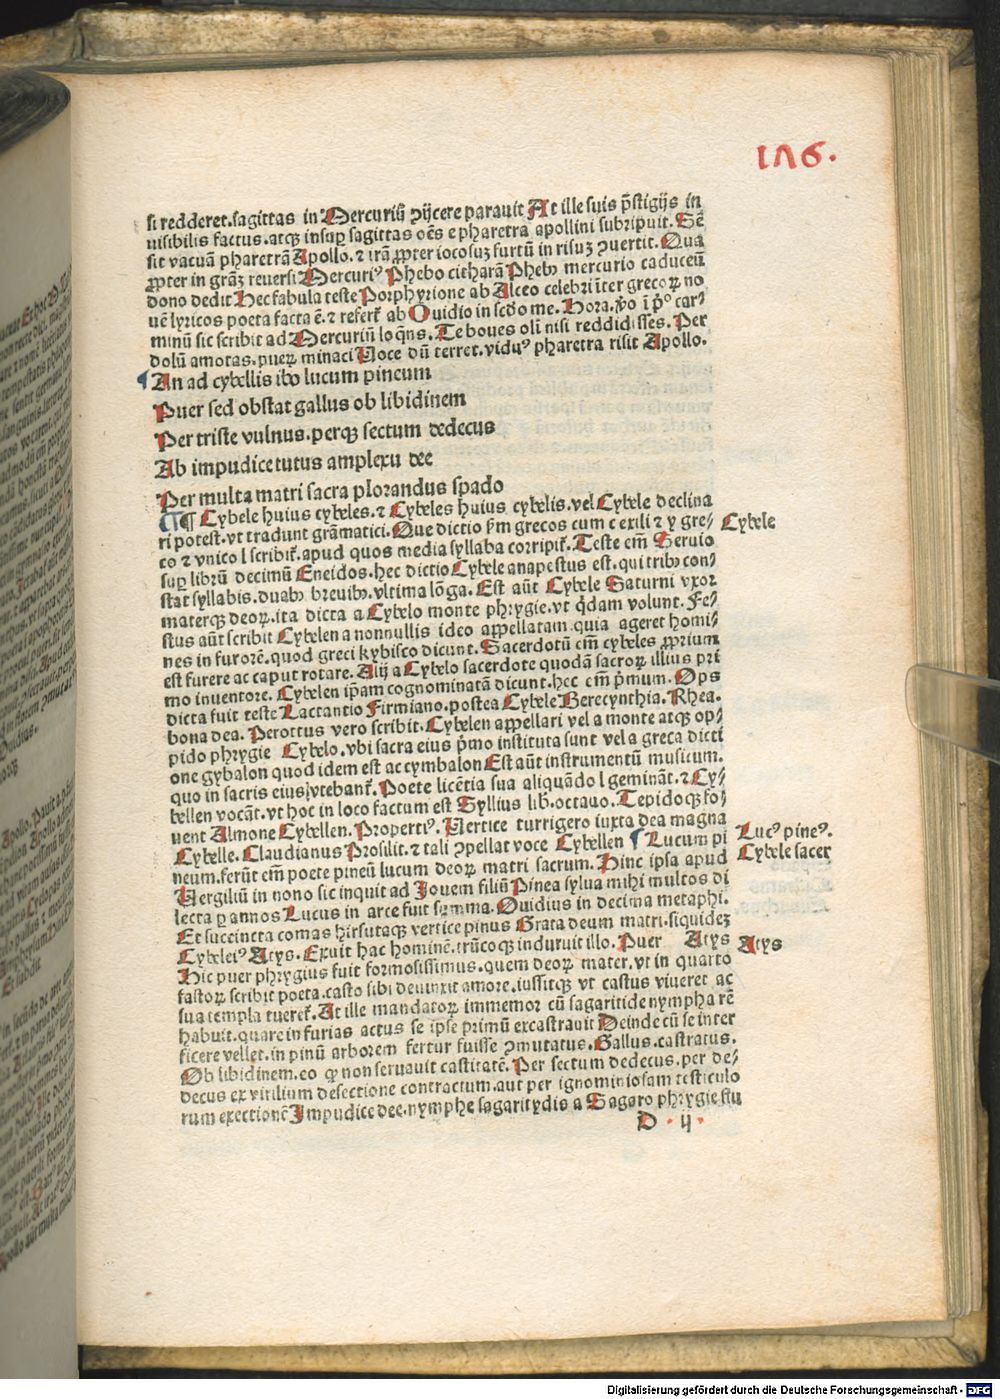 1Λ6.
si redderet.sagittas in Mercuriū ꝯijcere parauit At ille suis p̄stigijs in
uisibilis factus.atqꝫ insuꝑ sagittas oēs e pharetra apollini subripuit. Sē
sit vacuā pharetrā Apollo.⁊ irā ꝓpter iocosuꝫ furtū in risuꝫ ꝯuertit. Qua
ꝓpter in grāꝫ reuersi Mercuriꝰ Phebo citharā Phebꝰ mercurio caduceū
dono dedit Hec fabula teste Porphyrione ab Alceo celebri īter grecoꝝ no
uē lyricos poeta facta ē.⁊ refert̄ ab Ouidio in scd̄o me. Hora. v̄o ī p̄o carꝰ
minū sic scribit ad Mercuriū loqn̄s. Te boues oli nisi reddidisses. Per
dolū amotas.pueꝝ minaci Uoce dū terret.viduꝰ pharetra risit Apollo.
¶ An ad cybellis ibo lucum pineum
Puer sed obstat gallus ob libidinem
Per triste vulnus.perqꝫ sectum dedecus
Ab impudice tutus amplexu dee
Per multa matri sacra plorandus spado
¶ Cybele huius cybeles.⁊ Cybeles huius cybelis.vel Cybele declina
ri potest.vt tradunt grāmatici. Que dictio ẜm grecos cum c exili ⁊ y gre⸗
co ⁊ vnico l scribit̄.apud quos media syllaba corripit̄. Teste em̄ Seruio
suꝑ librū decimū Eneidos.hec dictio Cybele anapestus est.qui tribꝰ con⸗
stat syllabis.duabꝰ breuibꝰ.vltima lōga. Est aūt Cybele Saturni vxor
materqꝫ deoꝝ.ita dicta a Cybelo monte phrygie.vt qdam volunt. Fe⸗
stus aūt scribit Cybelen a nonnullis ideo appellatam.quia ageret homi⸗
nes in furorē.quod greci kybisco dicunt. Sacerdotū em̄ cybeles ꝓprium
est furere ac caput rotare. Alij a Cybelo sacerdote quodā sacroꝝ illius pri
mo inuentore. Cybelen ip̄am cognominatā dicunt.hec em̄ p̄mum. Ops
dicta fuit teste Lactantio Firmiano.postea Cybele Berecynthia. Rhea.
bona dea. Perottus vero scribit. Cybelen appellari vel a monte atqꝫ op⸗
pido phrygie Cybelo.vbi sacra eius p̄mo instituta sunt vel a greca dicti
one gybalon quod idem est ac cymbalon Est aūt instrumentū musicum.
quo in sacris eius vtebant̄. Poete licētia sua aliquādo l gemināt.⁊ Cy⸗
bellen vocāt.vt hoc in loco factum est Syllius lib.octauo. Tepidoqꝫ fo⸗
uent Almone Cybellen. Propertiꝰ. Uertice turrigero iuxta dea magna
Cybelle. Claudianus Prosilit.⁊ tali ꝯpellat voce Cybellen ¶ Lucum pi
neum.ferūt em̄ poete pineū lucum deoꝝ matri sacrum. Hinc ipsa apud
Uergiliū in nono sic inquit ad Jouem filiū Pinea sylua mihi multos di
lecta ꝑ annos Lucus in arce fuit summa. Ouidius in decima metaphi.
Et succincta comas hirsutaqꝫ vertice pinus Grata deum matri.siquideꝫ
Cybeleiꝰ Atys. Exuit hac hominē.trūcoqꝫ induruit illo. Puer Atys
Hic puer phrygius fuit formosissimus.quem deoꝝ mater.vt in quarto
fastoꝝ scribit poeta.casto sibi deuinxit amore.iussitqꝫ vt castus viueret ac
sua templa tueret̄. At ille mandatoꝝ immemor cū sagaritide nympha rē
habuit.quare in furias actus se ipse primū excastrauit Deinde cū se inter
ficere vellet.in pinū arborem fertur fuisse ꝯmutatus. Gallus.castratus.
Ob libidinem.eo ꝙ non seruauit castitatē. Per sectum dedecus.per de⸗
decus ex virilium desectione contractum.aut per ignominiosam testiculo
rum exectionē Impudice dee.nymphe sagaritydis a Sagaro phrygie flu
D.ij.
Cybele
Lucꝰ pineꝰ.
Cybele sacer
Atys
Digitalisierung gefördert durch die Deutsche Forschungsgemeinschaft - DFG